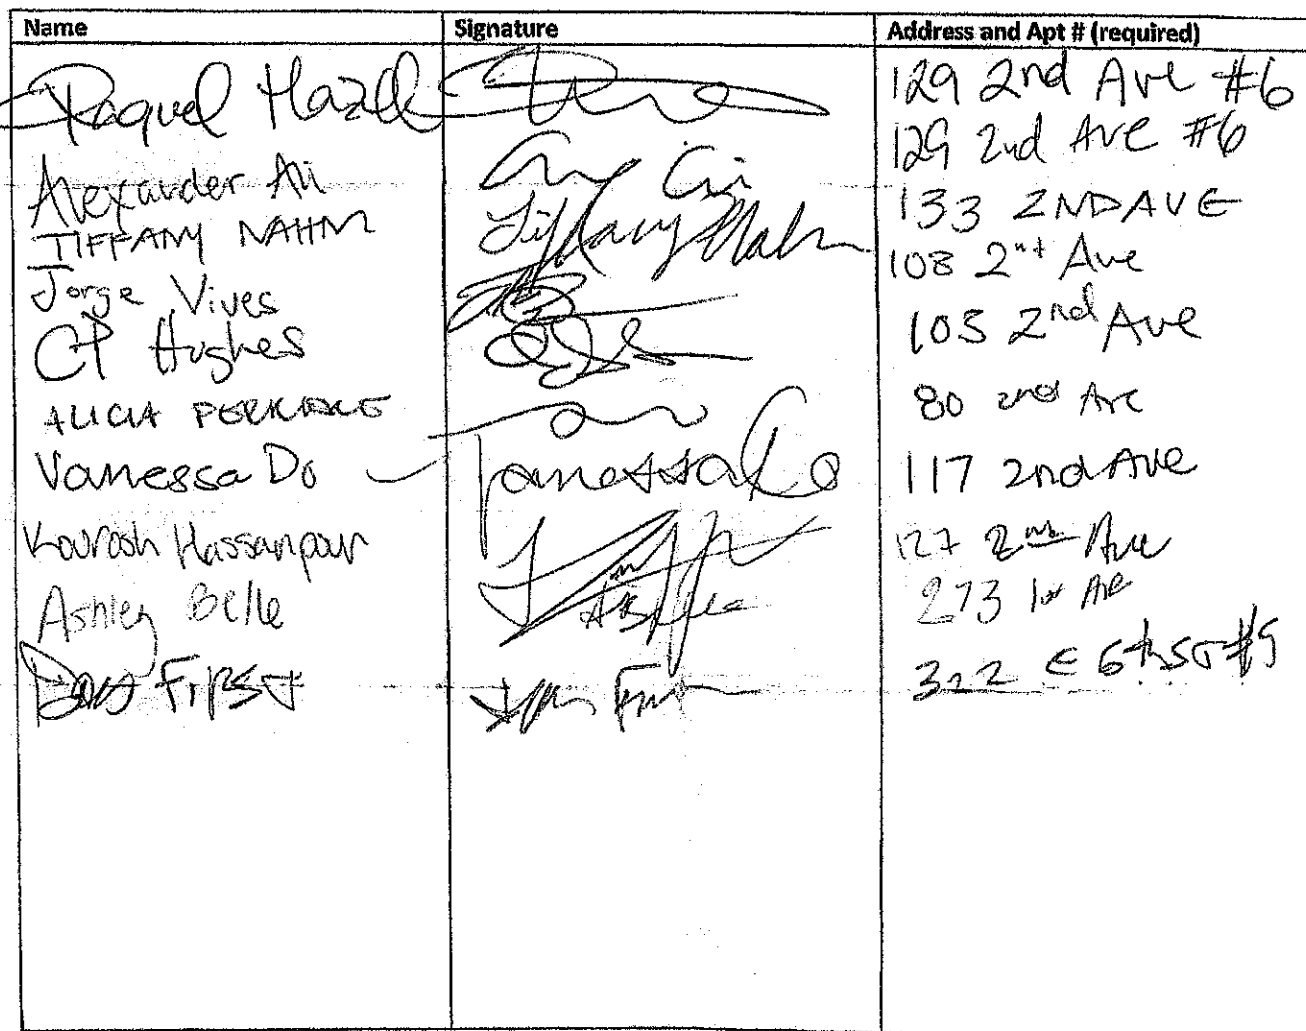 Name Signature Address and Apt # (required)
Raquel Hazell 129 2nd Ave #6
Alexander Ali 129 2nd Ave #6
TIFFANY NAHM Tiffany Nahm 133 2ND AVE
Jorge Vives 108 2nd Ave
CP Hughes 103 2nd Ave
ALICIA 80 2nd Ave
Vanessa Do Vanessa Do 117 2nd Ave
Kourosh Hassanpour 127 2nd Ave
Ashley Belle 273 1st Ave
First 322 E 6th ST #5